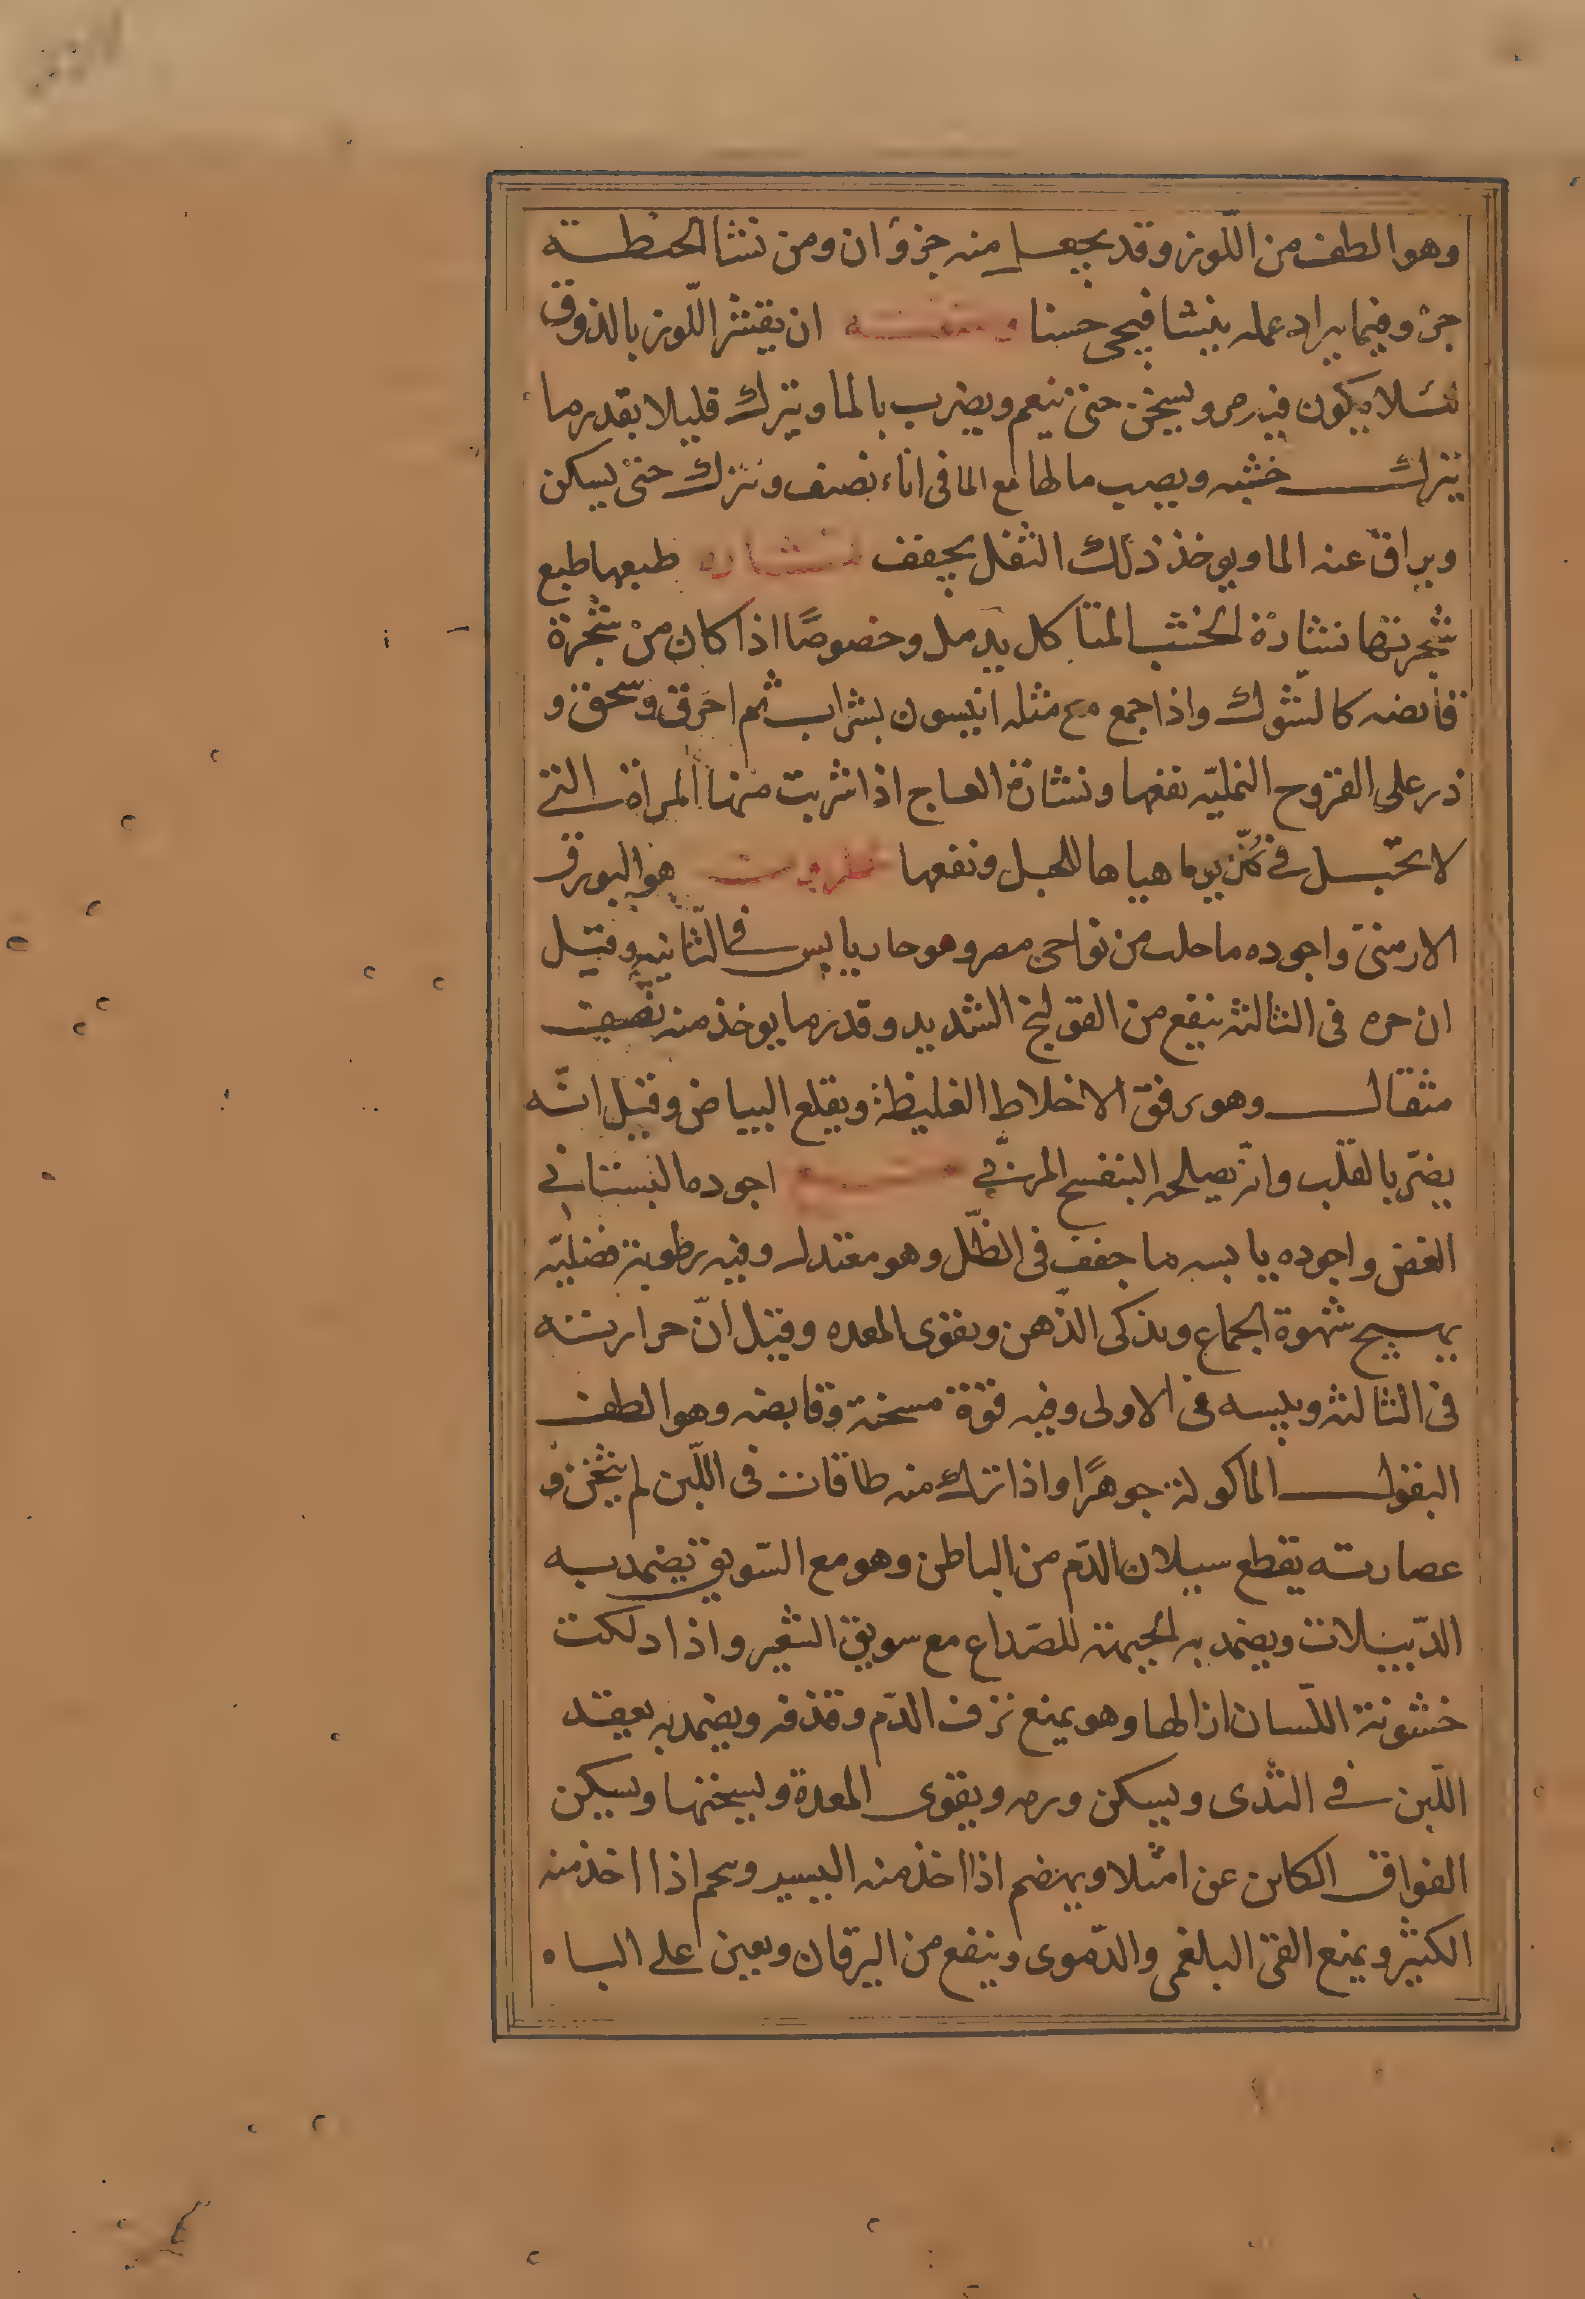 وهو الطف من اللّوز وقد يجعل منه جزؤان ومن نشا الحنطة
جزء وفيما يراد عمله بنشا فيجى حسنا وصفته ان يقشر اللّوز بالذوق
لئلا يكون فيه مر ويسخن حتى ينعم ويضرب بالما ويترك قليلا بقدر ما
يترك خثيه ويصب مالها مع الما فى اناء نصف وتترك حتى يسكن
ويراق عنه الما ويوخذ ذلك الثفل يجفف نشاره طبعها طبع
شجرتها نشارة الخشب المتاكل يدمل وخصوصًا اذا كان من شجرة
قابضه كالشوك واذا جمع مع مثله انيسون بشراب ثم احرق وسحق و
ذر على القروح النمليّه نفعها ونشارة العاج اذا شربت منها المراة التي
لا تحبل في هياها للحبل ونفعها نطرون هو البورق
الارمنى واجوده ما جلب من نواحى مصر وهو حار يابس في الثّانيه وقيل
ان حره فى الثالثه ينفع من القولنج الشديد وقدر ما يوخذ منه نصف
مثقال وهو يرفق الاخلاط الغليظة ويقلع البياض وقيل انّه
يضر بالقلب وانّه يصلحه البنفسج المربّي نعنع اجوده البستاني
الغض واجوده يابسه ما جفف فى الظّل وهو معتدل وفيه رطوبة فضليّه
يهيج شهوة الجماع ويذكى الذّهن ويقوى المعده وقيل انّ حرارته
فى الثالثه ويبسه فى الاولى وفيه قوّة مسخنة وقابضه وهو الطف
البقول الماكولة جوهرًا واذا ترك منه طاقات فى اللّبن لم يثخن و
عصارته يقطع سيلان الدّم من الباطن وهو مع السّويق يضمد به
الدّبيلات ويضمد به الجبهة للصّداع مع سويق الشّعير واذا دلكت
خشونة اللّسان ازالها وهو يمنع نزف الدّم وقذفه ويضمد به بعقد
اللّبن في الثّدى ويسكن ورمه ويقوى المعدة ويسخنها ويسكن
الفواق الكاين عن امتلا ويهضم اذا اخذ منه اليسير ويتخم اذا اخذ منه
الكثير ويمنع القى البلغمى والدّموى وينفع من اليرقان ويعين على الباه